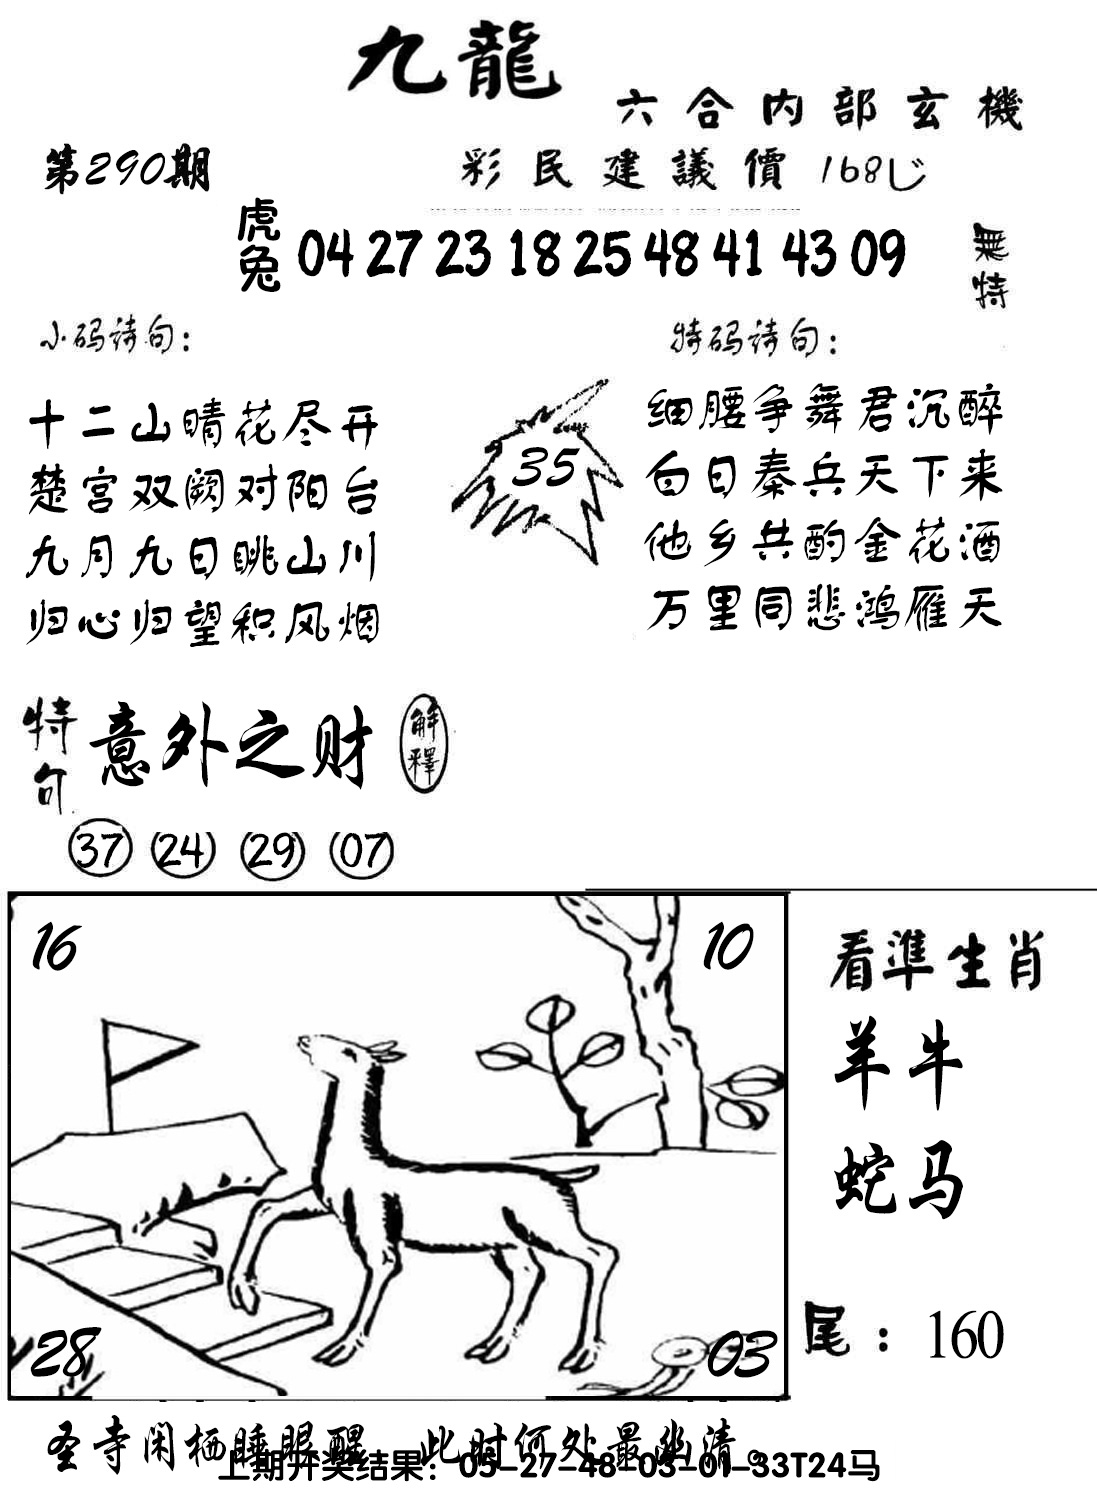 九龍
六合内部玄機
第290期
彩民建議價 168
虎兔 04 27 23 18 25 48 41 43 09
無特
小码诗句:
特码诗句:
十二山晴花尽开
楚宫双阙对阳台
九月九日眺山川
归心归望积风烟
35
细腰争舞君沉醉
白日秦兵天下来
他乡共酌金花酒
万里同悲鸿雁天
特句 意外之财 解釋
37 24 29 07
16 10
28 03
看準生肖
羊牛
蛇马
尾:160
圣寺闲栖睡眼醒 此时何处最幽清。
上期开奖结果:05-27-48-03-01-33T24马